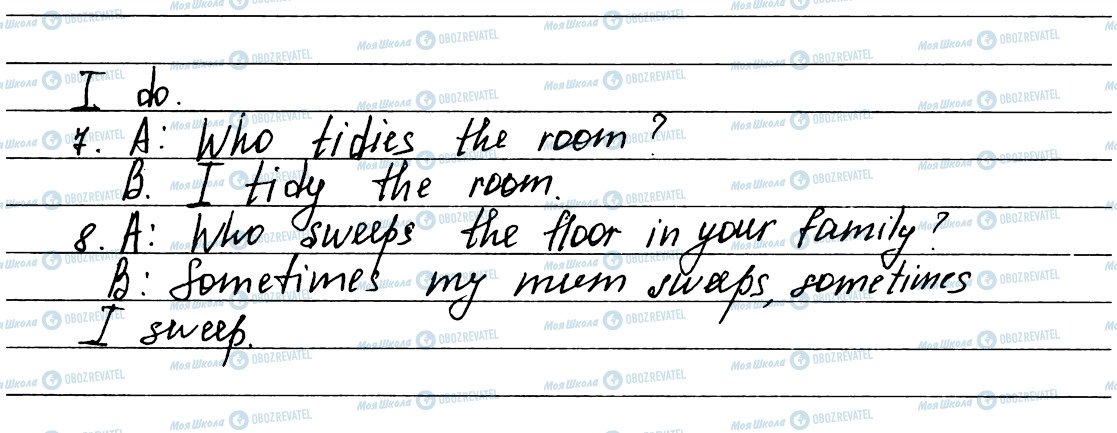 I do.
7. A: Who tidies the room?
B. I tidy the room.
8. A: Who sweeps the floor in your family?
B: Sometimes my mum sweeps, sometimes
I sweep.